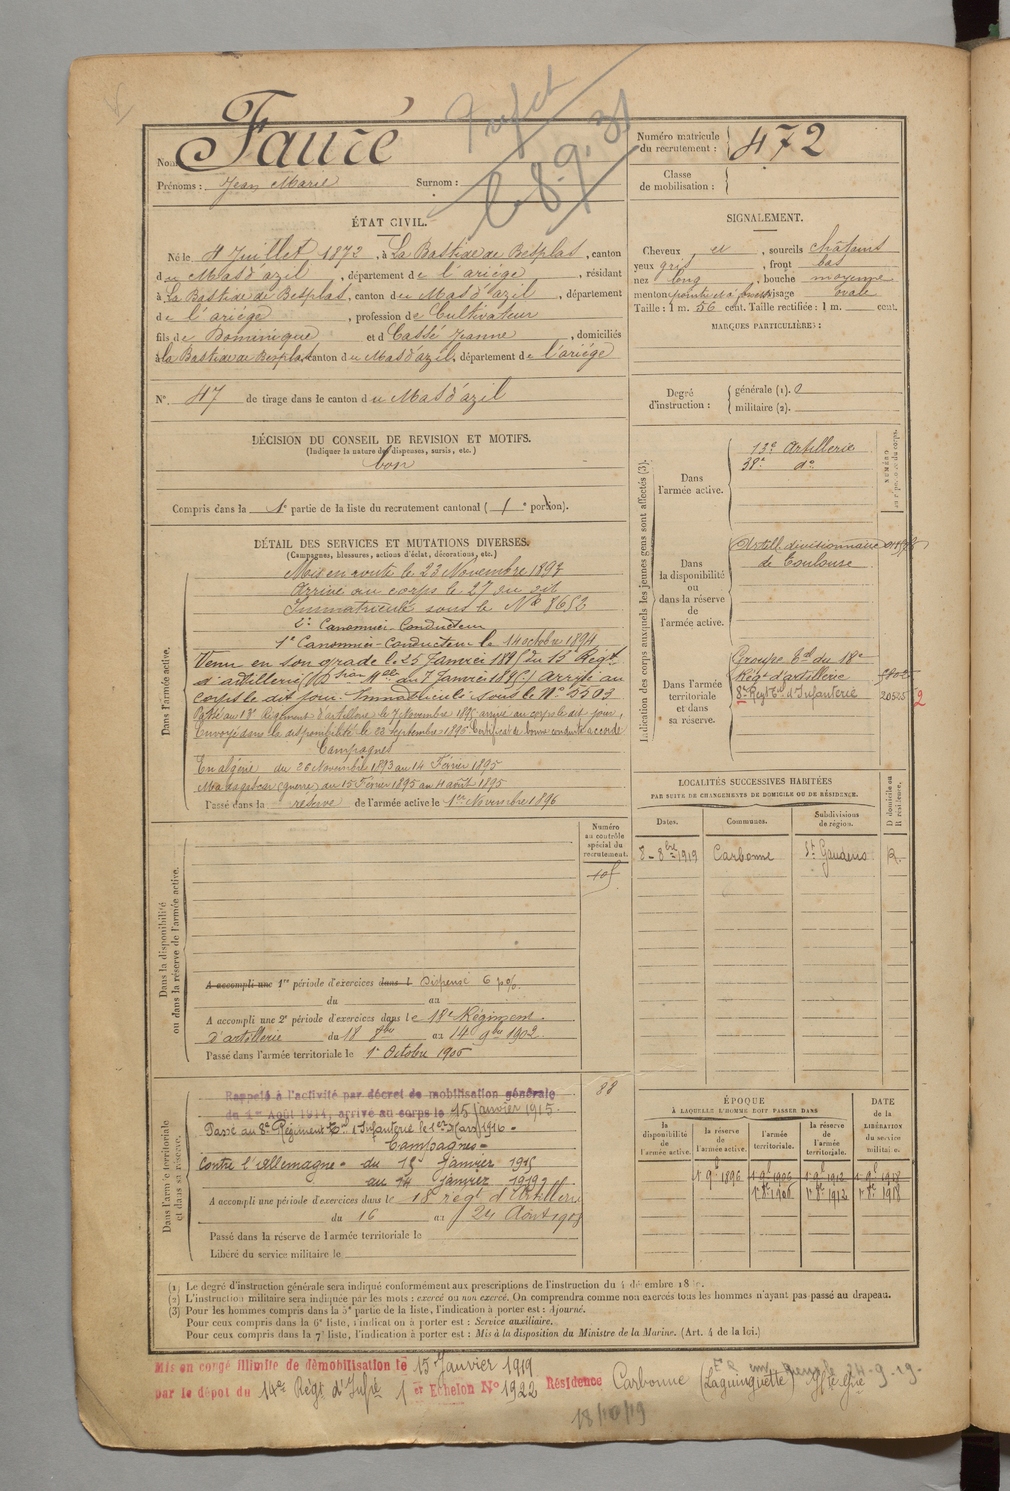 Préfet
le 8.9.31
Nom : Fauré
Prénoms : Jean Marie Surnom :
Numéro matricule du recrutement : 472
Classe de mobilisation :
ÉTAT CIVIL.
Né le 4 Juillet 1872, à La Bastide de Besplas, canton
du Mas d'azil, département de l'ariége, résidant
à La Bastide de Besplas, canton du Mas d'azil, département
de l'ariége, profession de Cultivateur
fils de Dominique et de Cassé Jeanne, domiciliés
à la Bastide de Besplas, canton du Mas d'azil, département de l'ariége
N° 47 de tirage dans le canton du Mas d'azil
SIGNALEMENT.
Cheveux et, sourcils châtains
yeux gris, front bas
nez long, bouche moyenne
menton visage ovale
Taille : 1 m. 56 cent. Taille rectifiée : 1 m. cent.
MARQUES PARTICULIÈRES :
Degré d'instruction : générale (1). 0
militaire (2).
DÉCISION DU CONSEIL DE REVISION ET MOTIFS.
(Indiquer la nature des dispenses, sursis, etc.)
bon
Compris dans la 1e partie de la liste du recrutement cantonal (1e portion).
DÉTAIL DES SERVICES ET MUTATIONS DIVERSES.
(Campagnes, blessures, actions d'éclat, décorations, etc.)
Dans l'armée active.
Mis en route le 23 Novembre 1893
Arrivé au corps le 27 du dit
Immatriculé sous le N° 8652
2e Canonnier Conducteur
1e Canonnier-Conducteur le 14 octobre 1894
Venu en son grade le 25 Janvier 1895 du 13e Régt
d'artillerie du 7 Janvier 1895) arrivé au
corps le dit jour Immatriculé sous le N° 5503
Passé au 18e Régiment d'artillerie le 7 Novembre 1895 arrivé au corps le dit jour,
Envoyé dans la disponibilité le 23 Septembre 1895 Certificat de bonne conduite accordé
Campagnes
En algérie du 26 Novembre 1893 au 14 Février 1895
Madagascar (guerre) du 15 Février 1895 au 4 août 1895
Passé dans la réserve de l'armée active le 1er Novembre 1896
Indication des corps auxquels les jeunes gens sont affectés (3).
NUMÉRO au répertoire du corps.
Dans l'armée active.
13e Artillerie
38e do
Dans la disponibilité ou dans la réserve de l'armée active.
Artill. divisionnaire
de Toulouse
Dans l'armée territoriale et dans sa réserve.
Groupe Tal du 18e
Régt d'artillerie
8e Régt Tal d'Infanterie 20505
LOCALITÉS SUCCESSIVES HABITÉES
PAR SUITE DE CHANGEMENTS DE DOMICILE OU DE RÉSIDENCE.
D domicile ou R résidence.
Dates. Communes. Subdivisions de région.
8-8bre 1919 Carbonne St Gaudens R.
Dans la disponibilité ou dans la réserve de l'armée active.
Numéro au contrôle spécial du recrutement.
A accompli une 1re période d'exercices dans l Dispensé
du au
A accompli une 2e période d'exercices dans le 18e Régiment
d'artillerie du 18 8bre au 14 9bre 1902
Passé dans l'armée territoriale le 1er Octobre 1906
Dans l'armée territoriale et dans sa réserve.
88
Rappelé à l'activité par décret de mobilisation générale
du 1er Août 1914, arrivé au corps le 15 janvier 1915.
Passé au 8e Régiment Tal d'Infanterie le 1er Mars 1916
Campagnes
Contre l'Allemagne du 15 Janvier 1915
au 14 Janvier 1919
A accompli une période d'exercices dans le 18e régt d'Artillerie
du 16 au 24 Aout 1908
Passé dans la réserve de l'armée territoriale le
Libéré du service militaire le
ÉPOQUE
À LAQUELLE L'HOMME DOIT PASSER DANS
DATE de la LIBÉRATION du service militaire.
la disponibilité de l'armée active. la réserve de l'armée active. l'armée territoriale. la réserve de l'armée territoriale.
1 9bre 1896 1 9l 1906 1 9l 1912 1 9l 1918
1er 8bre 1906 1er 8bre 1912 1er 8bre 1918
(1) Le degré d'instruction générale sera indiqué conformément aux prescriptions de l'instruction du 4 décembre 18
(2) L'instruction militaire sera indiquée par les mots : exercé ou non exercé. On comprendra comme non exercés tous les hommes n'ayant pas passé au drapeau.
(3) Pour les hommes compris dans la 5e partie de la liste, l'indication à porter est : Ajourné.
Pour ceux compris dans la 6e liste, l'indication à porter est : Service auxiliaire.
Pour ceux compris dans la 7e liste, l'indication à porter est : Mis à la disposition du Ministre de la Marine. (Art. 4 de la loi.)
Mis en congé illimité de démobilisation le 15 Janvier 1919
par le dépôt du 14e Régt d'Infie 1er Echelon N° 1922 Résidence Carbonne (Laguinguette) 24-9-19
18/10/19